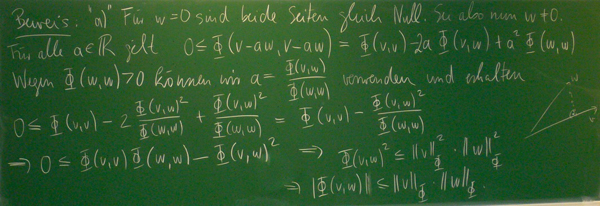 Beweis: "a)" Für w=0 sind beide Seiten gleich Null. Sei also nun w≠0.
Für alle a∈ℝ gilt 0 ≤ Φ(v-aw, v-aw) = Φ(v,v) - 2a Φ(v,w) + a² Φ(w,w)
Wegen Φ(w,w)>0 können wir a = Φ(v,w)/Φ(w,w) verwenden und erhalten
0 ≤ Φ(v,v) - 2 Φ(v,w)²/Φ(w,w) + Φ(v,w)²/Φ(w,w) = Φ(v,v) - Φ(v,w)²/Φ(w,w)
⇒ 0 ≤ Φ(v,v) Φ(w,w) - Φ(v,w)² ⇒ Φ(v,w)² ≤ ‖v‖²_Φ · ‖w‖²_Φ
⇒ |Φ(v,w)| ≤ ‖v‖_Φ · ‖w‖_Φ.
w
v